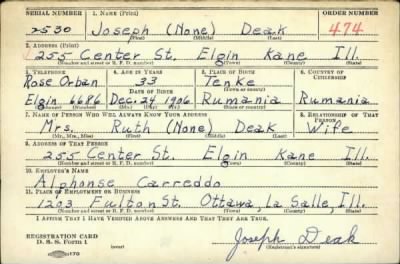 SERIAL NUMBER 1. NAME (Print) ORDER NUMBER
2530 Joseph (None) Deak 474
(First) (Middle) (Last)
2. ADDRESS (Print)
255 Center St. Elgin Kane Ill.
(Number and street or R. F. D. number) (Town) (County) (State)
3. TELEPHONE 4. AGE IN YEARS 5. PLACE OF BIRTH 6. COUNTRY OF CITIZENSHIP
Rose Orban 33 Tenke
DATE OF BIRTH (Town or county)
Elgin 6686 Dec. 24 1906 Rumania Rumania
(Exchange) (Number) (Mo.) (Day) (Yr.) (State or country)
7. NAME OF PERSON WHO WILL ALWAYS KNOW YOUR ADDRESS 8. RELATIONSHIP OF THAT PERSON
Mrs. Ruth (None) Deak Wife
(Mr., Mrs., Miss) (First) (Middle) (Last)
9. ADDRESS OF THAT PERSON
255 Center St. Elgin Kane Ill.
(Number and street or R. F. D. number) (Town) (County) (State)
10. EMPLOYER'S NAME
Alphonse Carreddo
11. PLACE OF EMPLOYMENT OR BUSINESS
1203 Fulton St. Ottawa, La Salle, Ill.
(Number and street or R. F. D. number) (Town) (County) (State)
I AFFIRM THAT I HAVE VERIFIED ABOVE ANSWERS AND THAT THEY ARE TRUE.
REGISTRATION CARD
D. S. S. Form 1 (over) Joseph Deak
(Registrant's signature)